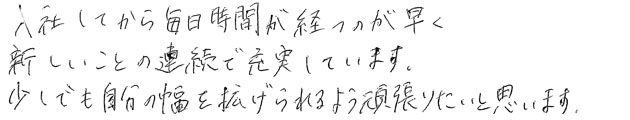 入社してから毎日時間が経つのが早く
新しいことの連続で充実しています。
少しでも自分の幅を拡げられるよう頑張りたいと思います。